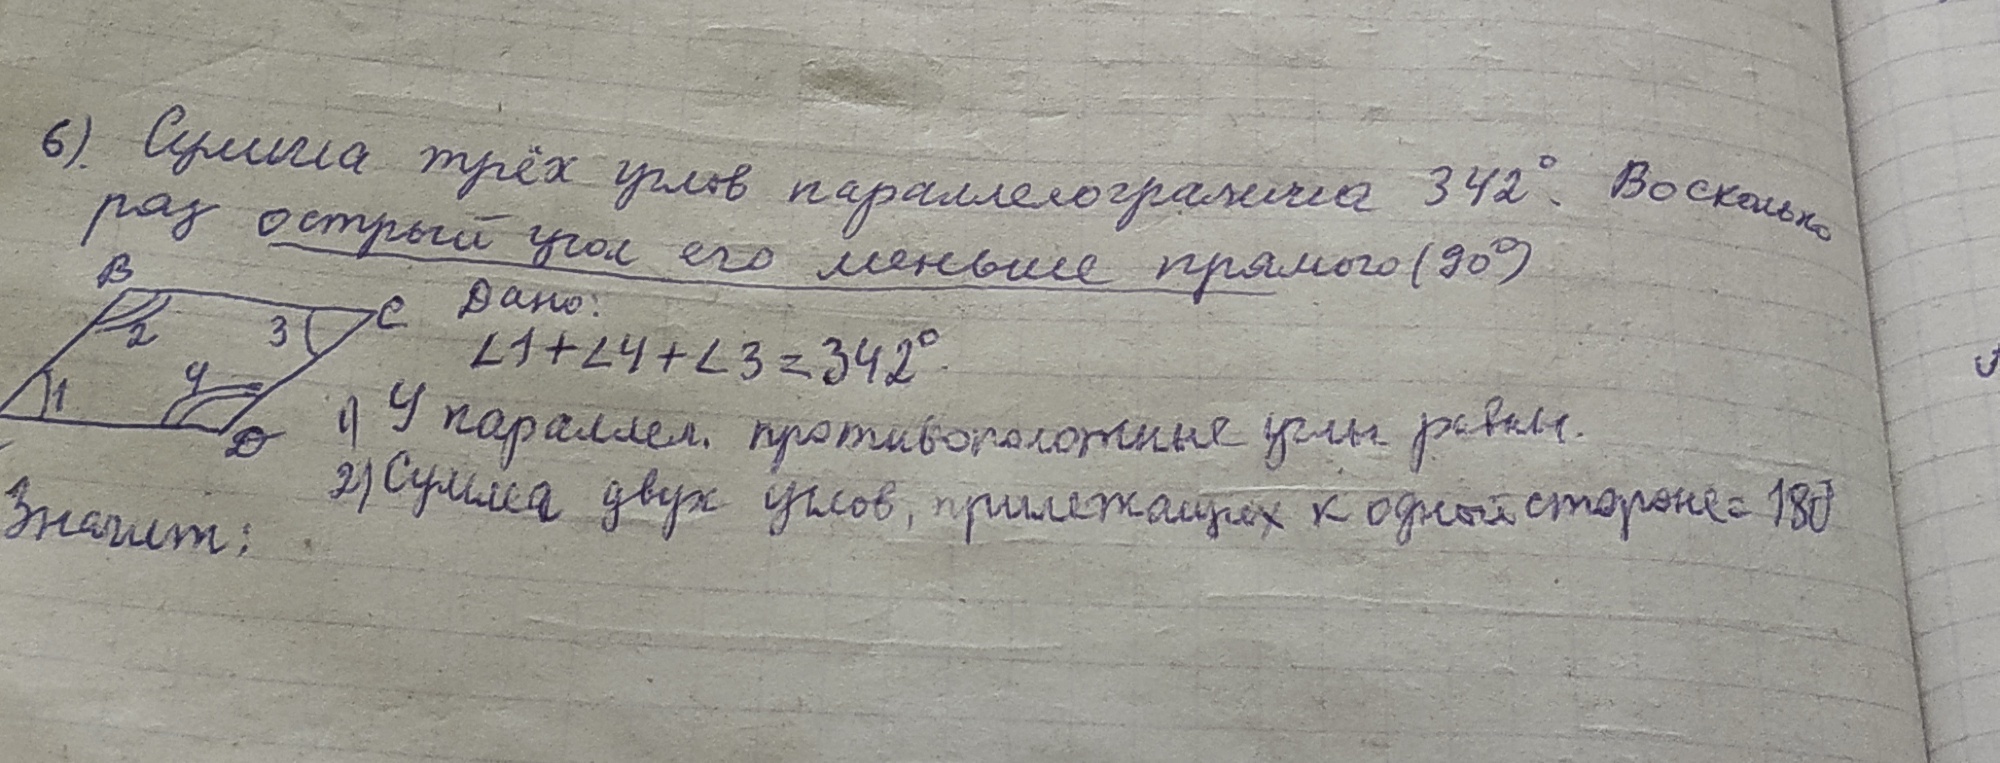 6). Сумма трёх углов параллелограмма 342°. Восколько
раз острый угол его меньше прямого (90°)
B
C
2
3
4
1
D
Дано:
∠1+∠4+∠3=342°
1) У параллел. противоположные углы равны.
2) Сумма двух углов, прилежащих к одной стороне = 180
Значит: